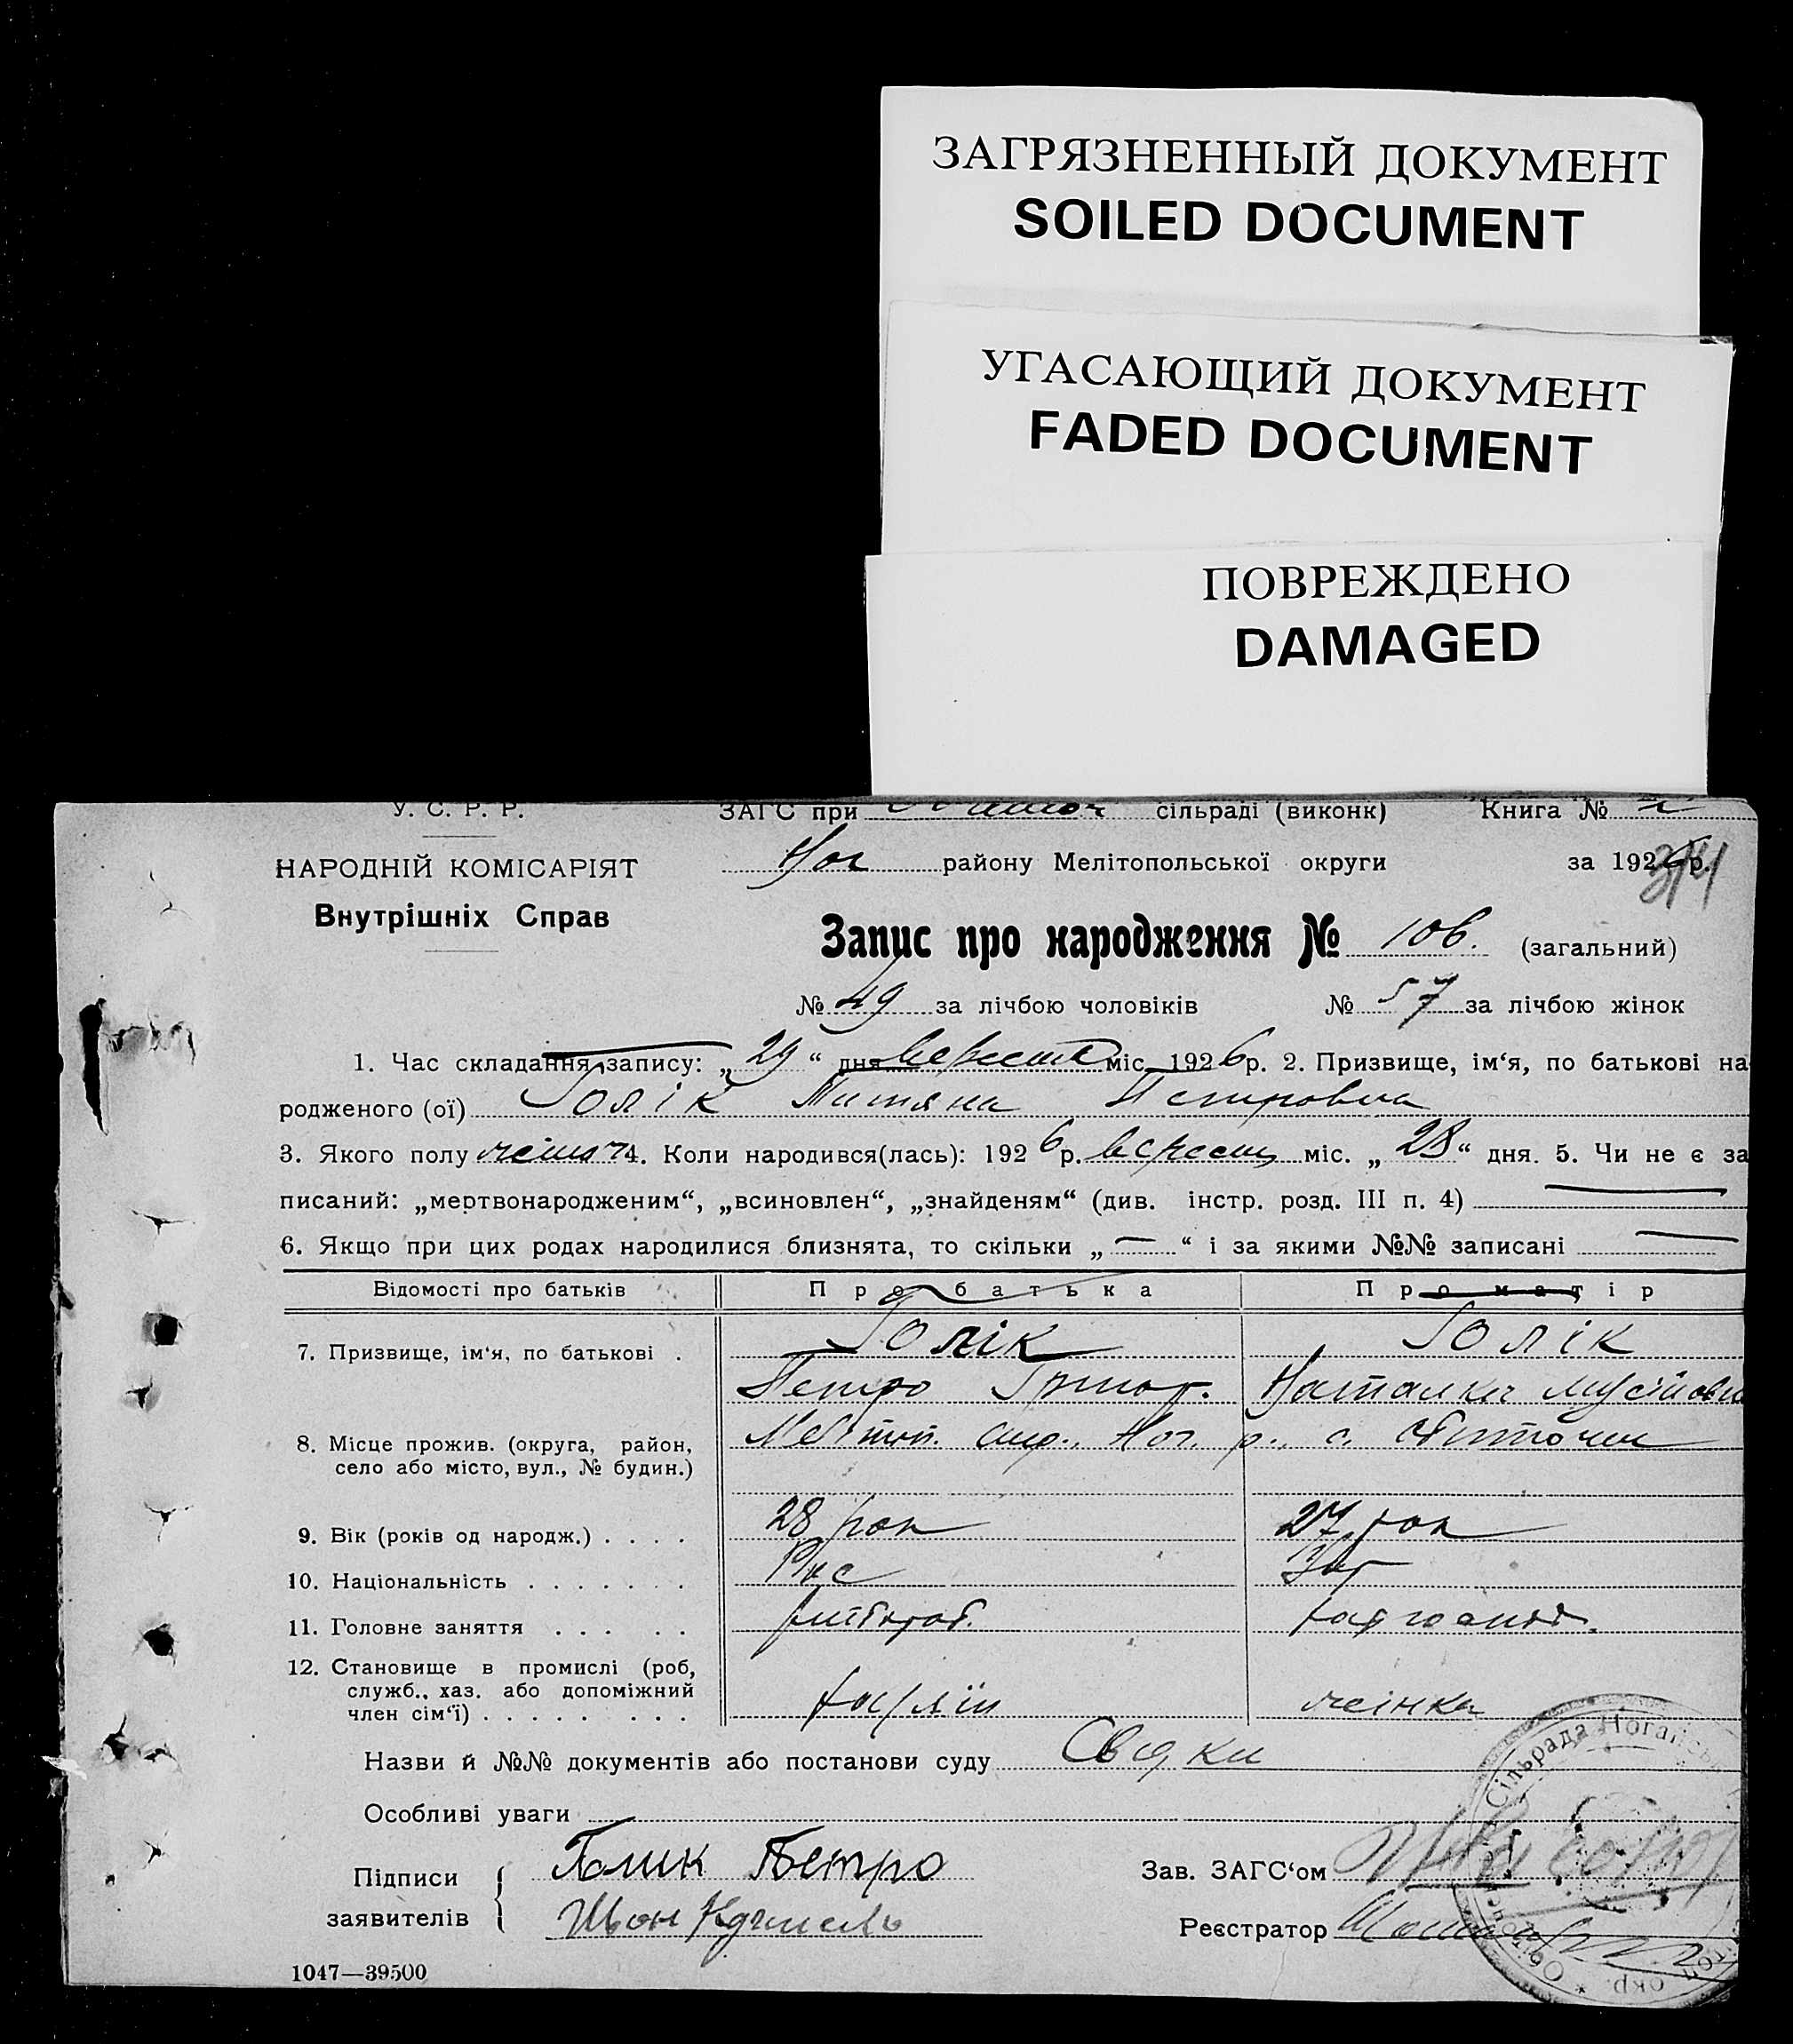 ЗАГРЯЗНЕННЫЙ ДОКУМЕНТ
SOILED DOCUMENT
УГАСАЮЩИЙ ДОКУМЕНТ
FADED DOCUMENT
ПОВРЕЖДЕНО
DAMAGED
У. С. Р. Р. ЗАГС при сільраді (виконк) Книга №
НАРОДНІЙ КОМІСАРІЯТ Ног району Мелітопольської округи за 1926 р.
Внутрішніх Справ
Запис про народження № 106. (загальний)
№ 49 за лічбою чоловіків № 57 за лічбою жінок
1. Час складання запису: „ 29 “ дня міс. 1926 р. 2. Призвище, ім‘я, по батькові на-
родженого (ої) Голік Титяна Петровна
3. Якого полу жіноч 4. Коли народився(лась): 1926 р. вересня міс. „ 28 “ дня. 5. Чи не є за
писаний: „мертвонародженим“, „всиновлен“, „знайденям“ (див. інстр. розд. III п. 4) —
6. Якщо при цих родах народилися близнята, то скільки „ — “ і за якими №№ записані —
Відомості про батьків Про батька Про матір
7. Призвище, ім‘я, по батькові . Голік Голік
Петро Григор. Наталка Мусійовн
8. Місце прожив. (округа, район, Меліtoп. окр., Ног. р., с.
село або місто, вул., № будин.)
9. Вік (років од народж.) . . . . 28 рок 27 рок
10. Національність . . . . . . . Рус
11. Головне заняття . . . . . хлібороб.
12. Становище в промислі (роб,
служб., хаз. або допоміжний
член сім‘ї) . . . . . . . . . хазяїн жінка
Назви й №№ документів або постанови суду Свідки
Особливі уваги
Підписи Голик Петро Зав. ЗАГС‘ом
заявителів Реєстратор
Сільрада Ногайськ
окр.
1047—39500